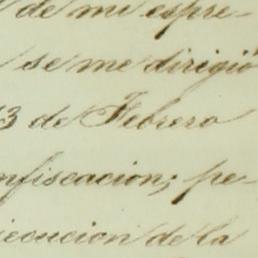 de mi espre-
se me dirigió
3 de Febrero
nfiscacion; pe-
ecucion de la